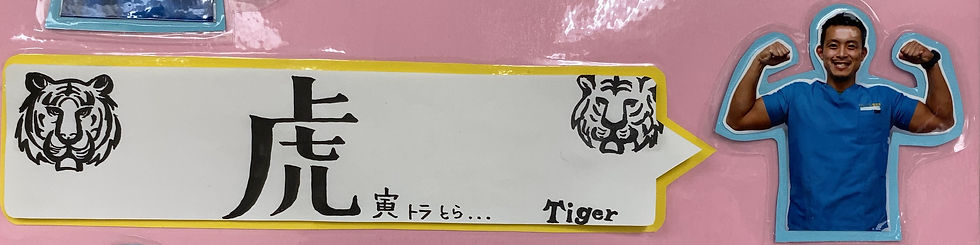 虎
寅 トラ とら... Tiger